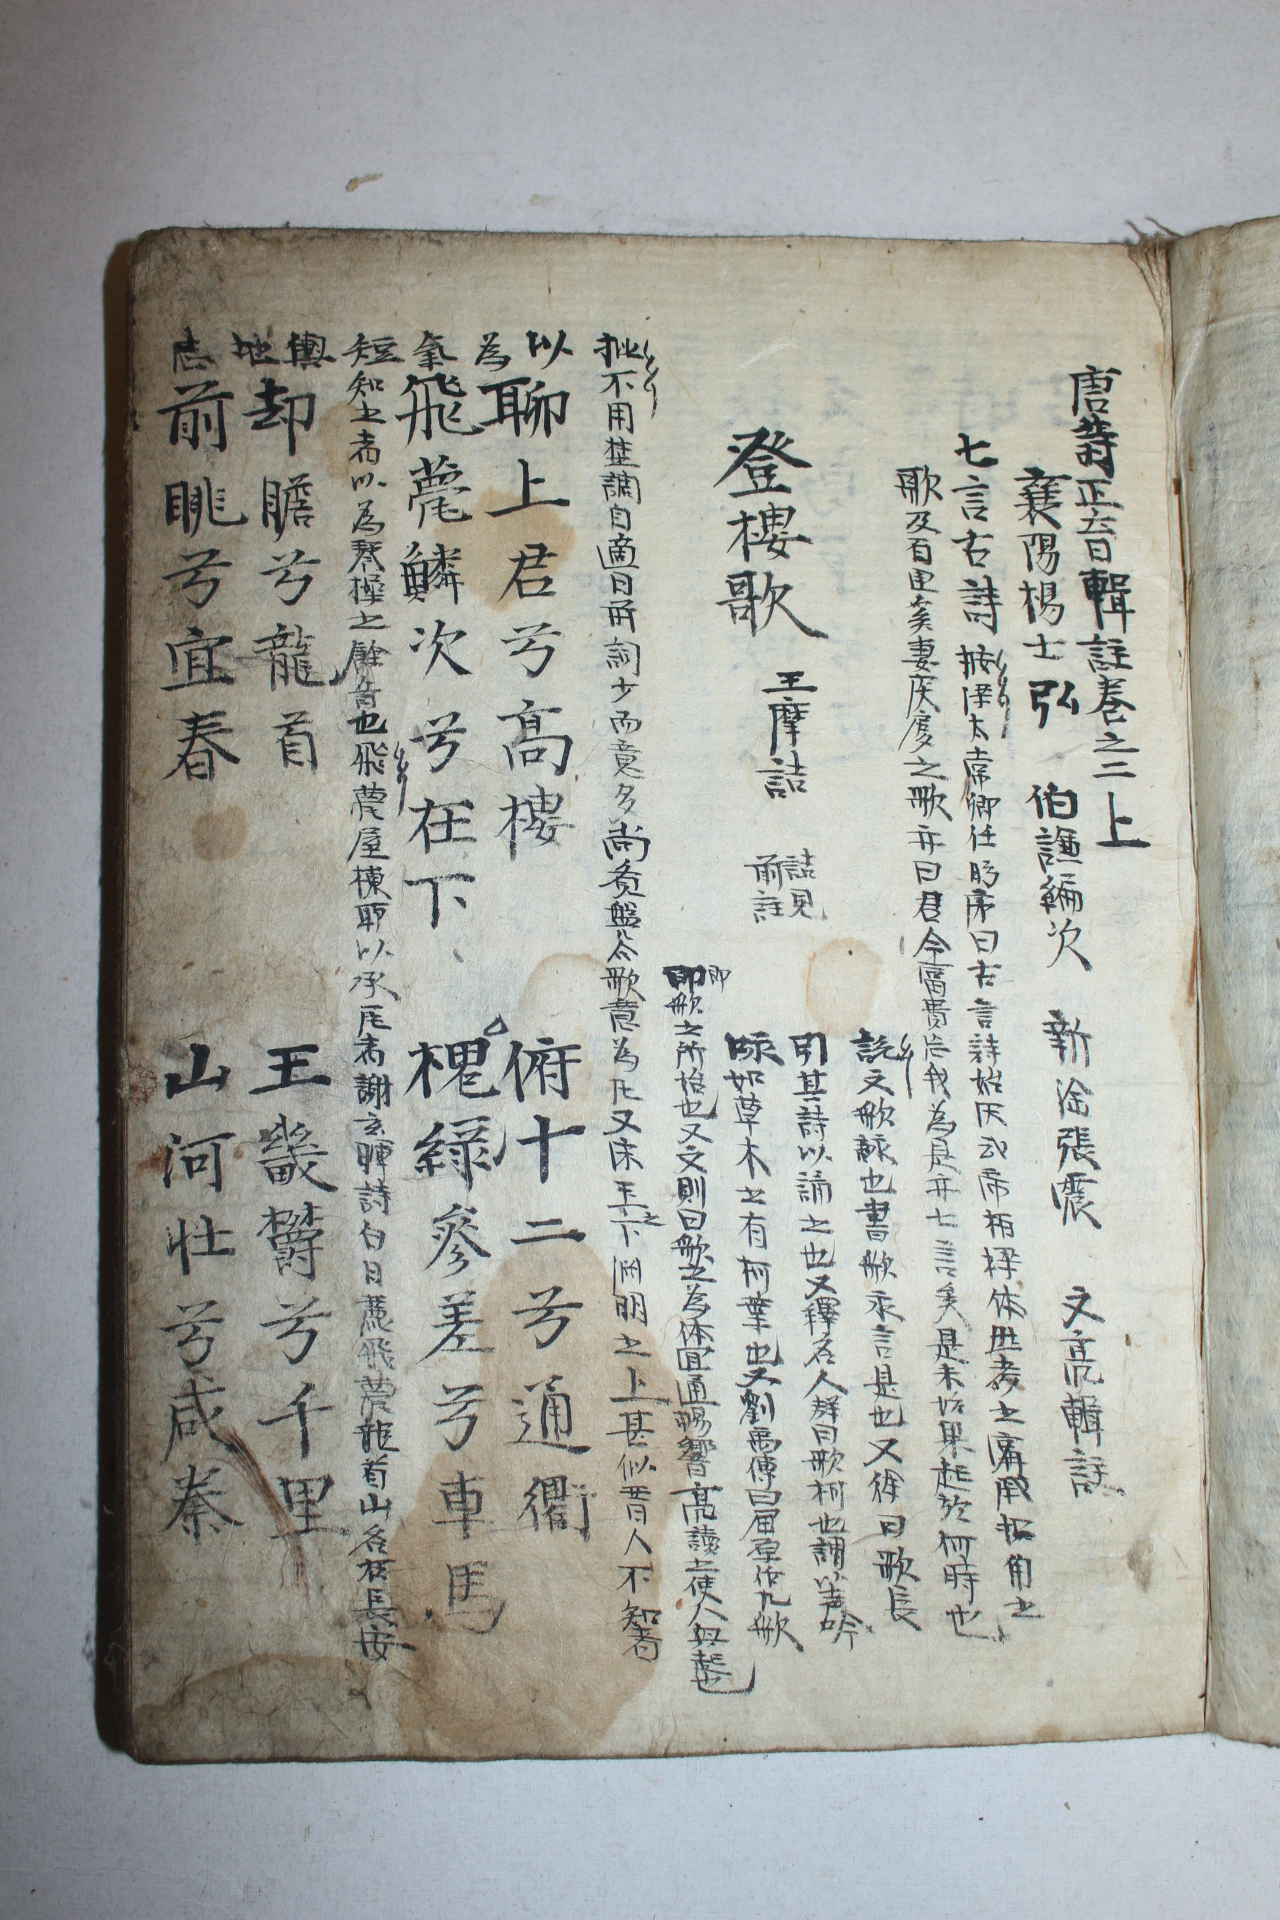 唐詩正音輯註卷之二上
襄陽楊士弘 伯謙編次 新淦張震 文亮輯註
七言古詩 按梁太常卿任昉序曰古言詩始於武帝栢梁体世考之庸用扣角之
歌及百里奚妻扊扅之歌亦曰君今富貴忘我為是亦七言矣是未始果起於何時也
登樓歌 王摩詰 詰見前註
說文歌詠也書歌永言是也又徐曰歌長
引其詩以誦之也又釋名人聲曰歌柯也謂以声吟
咏如草木之有柯葉也又劉禹傳曰屈原作九歌
即歌之所始也又文則曰歌之為体宜通暢響亮讀之使人興起也
批不用楚調自適目前詞少而意多尚覺盤谷歌意為凡又宋玉之下淵明之上甚似晋人不知者
以為 聊上君兮高樓 俯十二兮通衢
氣 飛甍鱗次兮在下 槐綠參差兮車馬
短知之者以為琴操之餘音也飛甍屋棟所以承瓦者謝玄暉詩白日麗飛甍龍首山名在長安
輿地 却瞻兮龍首 王畿欝兮千里
志 前眺兮宜春 山河壮兮咸秦